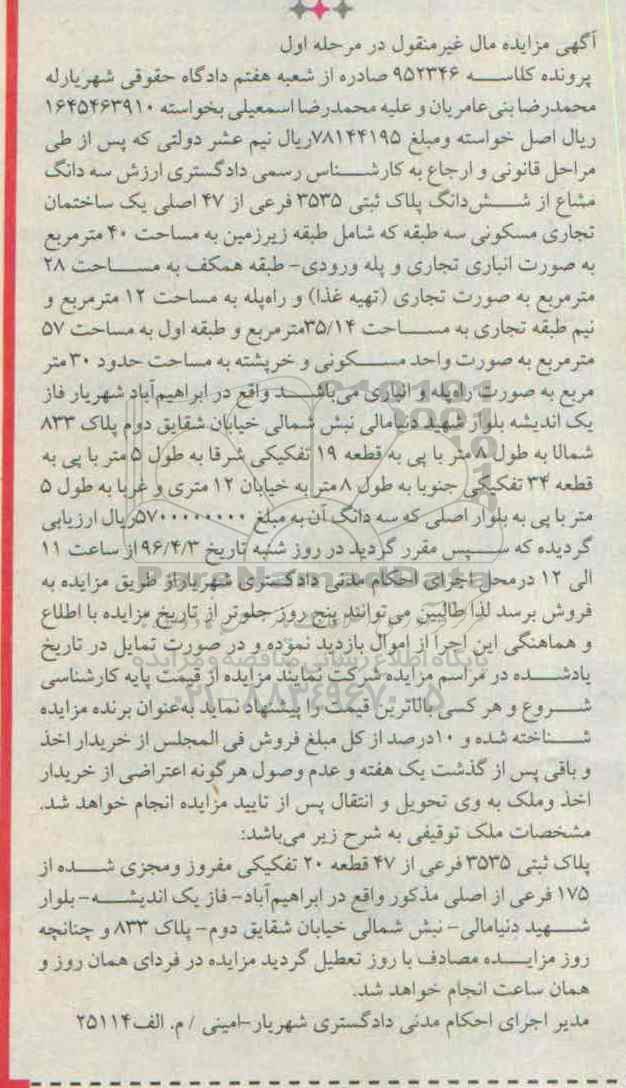 آگهی مزایده مال غیرمنقول در مرحله اول
پرونده کلاسه ۹۵۲۳۴۶ صادره از شعبه هفتم دادگاه حقوقی شهریارله
محمدرضا بنی‌عامریان و علیه محمدرضا اسمعیلی بخواسته ۱۶۴۵۴۶۳۹۱۰
ریال اصل خواسته ومبلغ ۷۸۱۴۴۱۹۵ریال نیم عشر دولتی که پس از طی
مراحل قانونی و ارجاع به کارشناس رسمی دادگستری ارزش سه دانگ
مشاع از شش‌دانگ پلاک ثبتی ۳۵۳۵ فرعی از ۴۷ اصلی یک ساختمان
تجاری مسکونی سه طبقه که شامل طبقه زیرزمین به مساحت ۴۰ مترمربع
به صورت انباری تجاری و پله ورودی- طبقه همکف به مساحت ۲۸
مترمربع به صورت تجاری (تهیه غذا) و راه‌پله به مساحت ۱۲ مترمربع و
نیم طبقه تجاری به مساحت ۳۵/۱۴مترمربع و طبقه اول به مساحت ۵۷
مترمربع به صورت واحد مسکونی و خرپشته به مساحت حدود ۳۰ متر
مربع به صورت راه‌پله و انباری می‌باشد واقع در ابراهیم‌آباد شهریار فاز
یک اندیشه بلوار شهید دنیامالی نبش شمالی خیابان شقایق دوم پلاک ۸۳۳
شمالا به طول ۸ متر با پی به قطعه ۱۹ تفکیکی شرقا به طول ۵ متر با پی به
قطعه ۳۴ تفکیکی جنوبا به طول ۸ متر به خیابان ۱۲ متری و غربا به طول ۵
متر با پی به بلوار اصلی که سه دانگ آن به مبلغ ۵۷۰۰۰۰۰۰۰۰ریال ارزیابی
گردیده که سپس مقرر گردید در روز شنبه تاریخ ۹۶/۴/۳ از ساعت ۱۱
الی ۱۲ درمحل اجرای احکام مدنی دادگستری شهریاراز طریق مزایده به
فروش برسد لذا طالبین می‌توانند پنج روز جلوتر از تاریخ مزایده با اطلاع
و هماهنگی این اجرا از اموال بازدید نموده و در صورت تمایل در تاریخ
یادشده در مراسم مزایده شرکت نمایند مزایده از قیمت پایه کارشناسی
شروع و هر کسی بالاترین قیمت را پیشنهاد نماید به‌عنوان برنده مزایده
شناخته شده و ۱۰درصد از کل مبلغ فروش فی المجلس از خریدار اخذ
و باقی پس از گذشت یک هفته و عدم وصول هرگونه اعتراضی از خریدار
اخذ وملک به وی تحویل و انتقال پس از تایید مزایده انجام خواهد شد.
مشخصات ملک توقیفی به شرح زیر می‌باشد:
پلاک ثبتی ۳۵۳۵ فرعی از ۴۷ قطعه ۲۰ تفکیکی مفروز ومجزی شده از
۱۷۵ فرعی از اصلی مذکور واقع در ابراهیم‌آباد- فاز یک اندیشه- بلوار
شهید دنیامالی- نبش شمالی خیابان شقایق دوم- پلاک ۸۳۳ و چنانچه
روز مزایده مصادف با روز تعطیل گردید مزایده در فردای همان روز و
همان ساعت انجام خواهد شد.
مدیر اجرای احکام مدنی دادگستری شهریار-امینی / م. الف۲۵۱۱۴
ParsNamadData
پایگاه اطلاع رسانی مناقصه و مزایده
۰۲۱-۸۸۳۴۹۶۷۰-۵